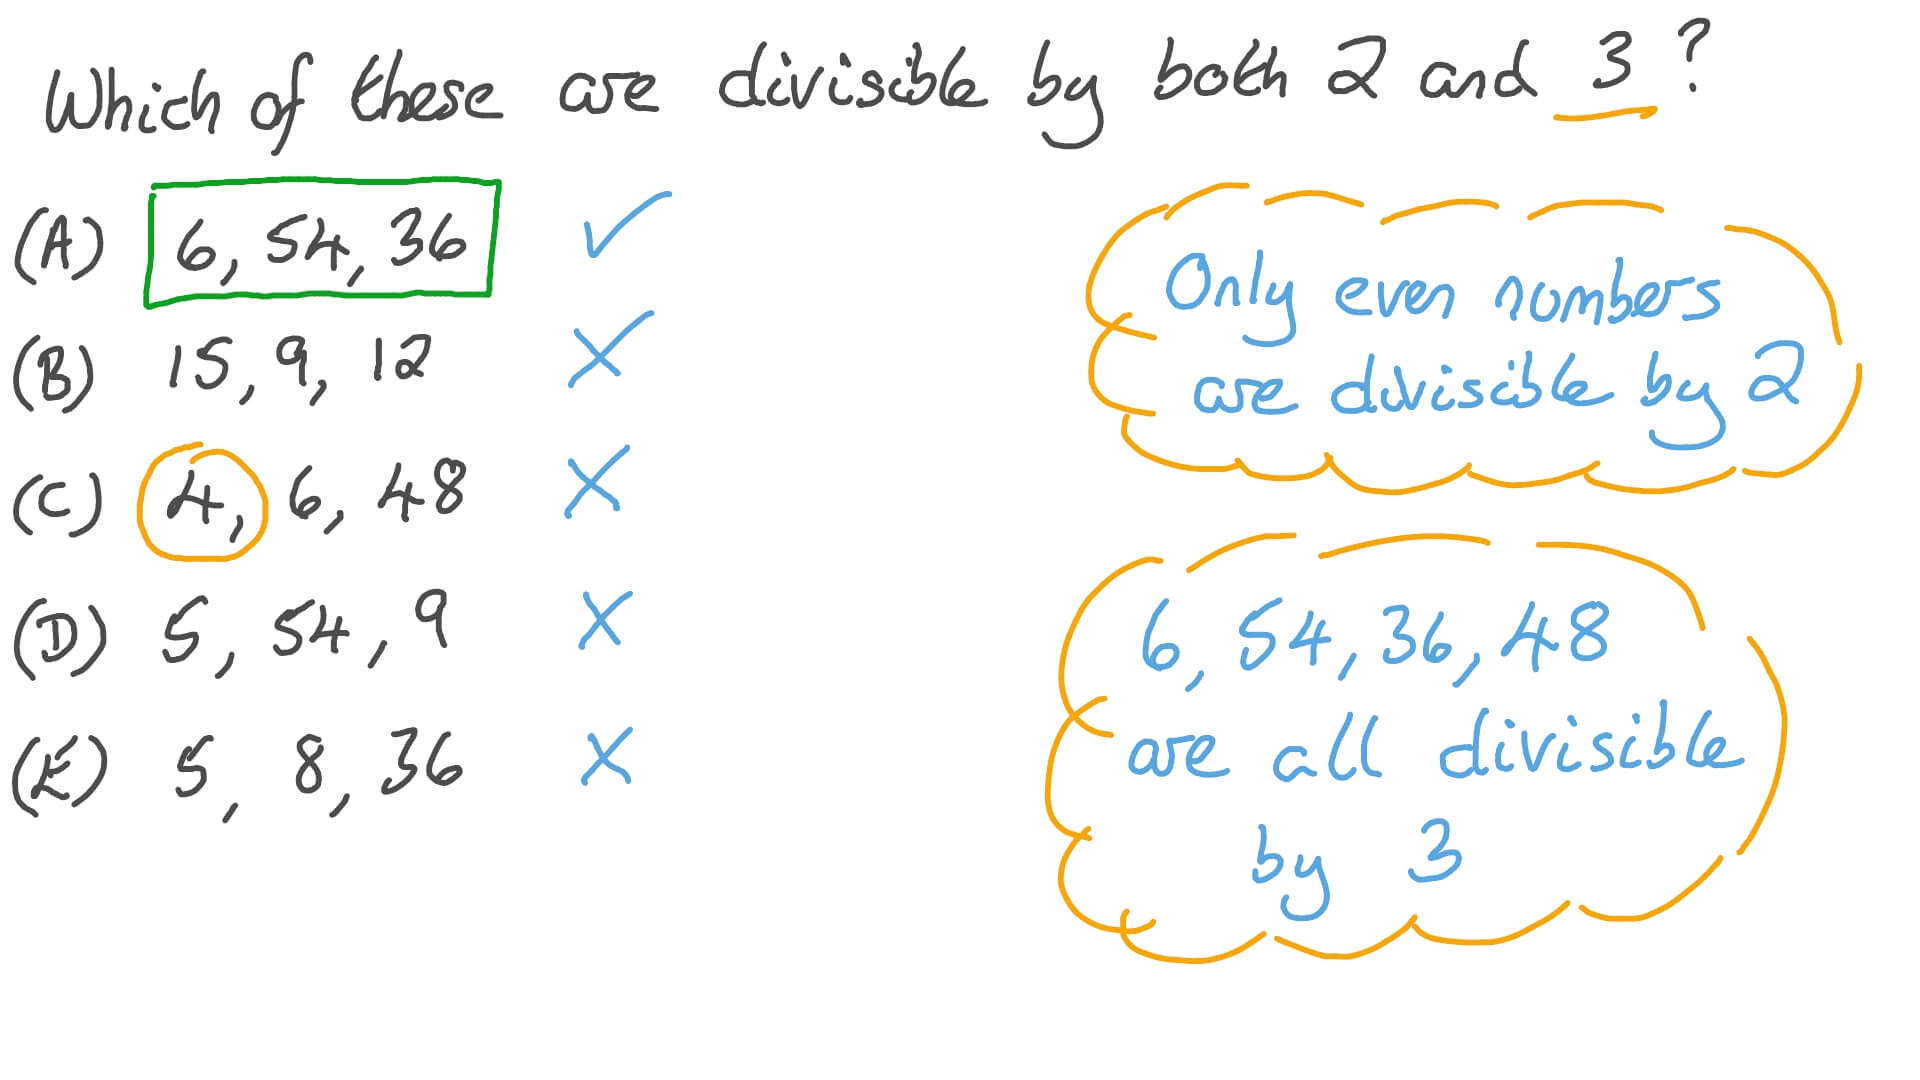 Which of these are divisible by both 2 and 3 ?
(A) 6, 54, 36
(B) 15, 9, 12
(C) 4, 6, 48
(D) 5, 54, 9
(E) 5, 8, 36
Only even numbers
are divisible by 2
6, 54, 36, 48
are all divisible
by 3